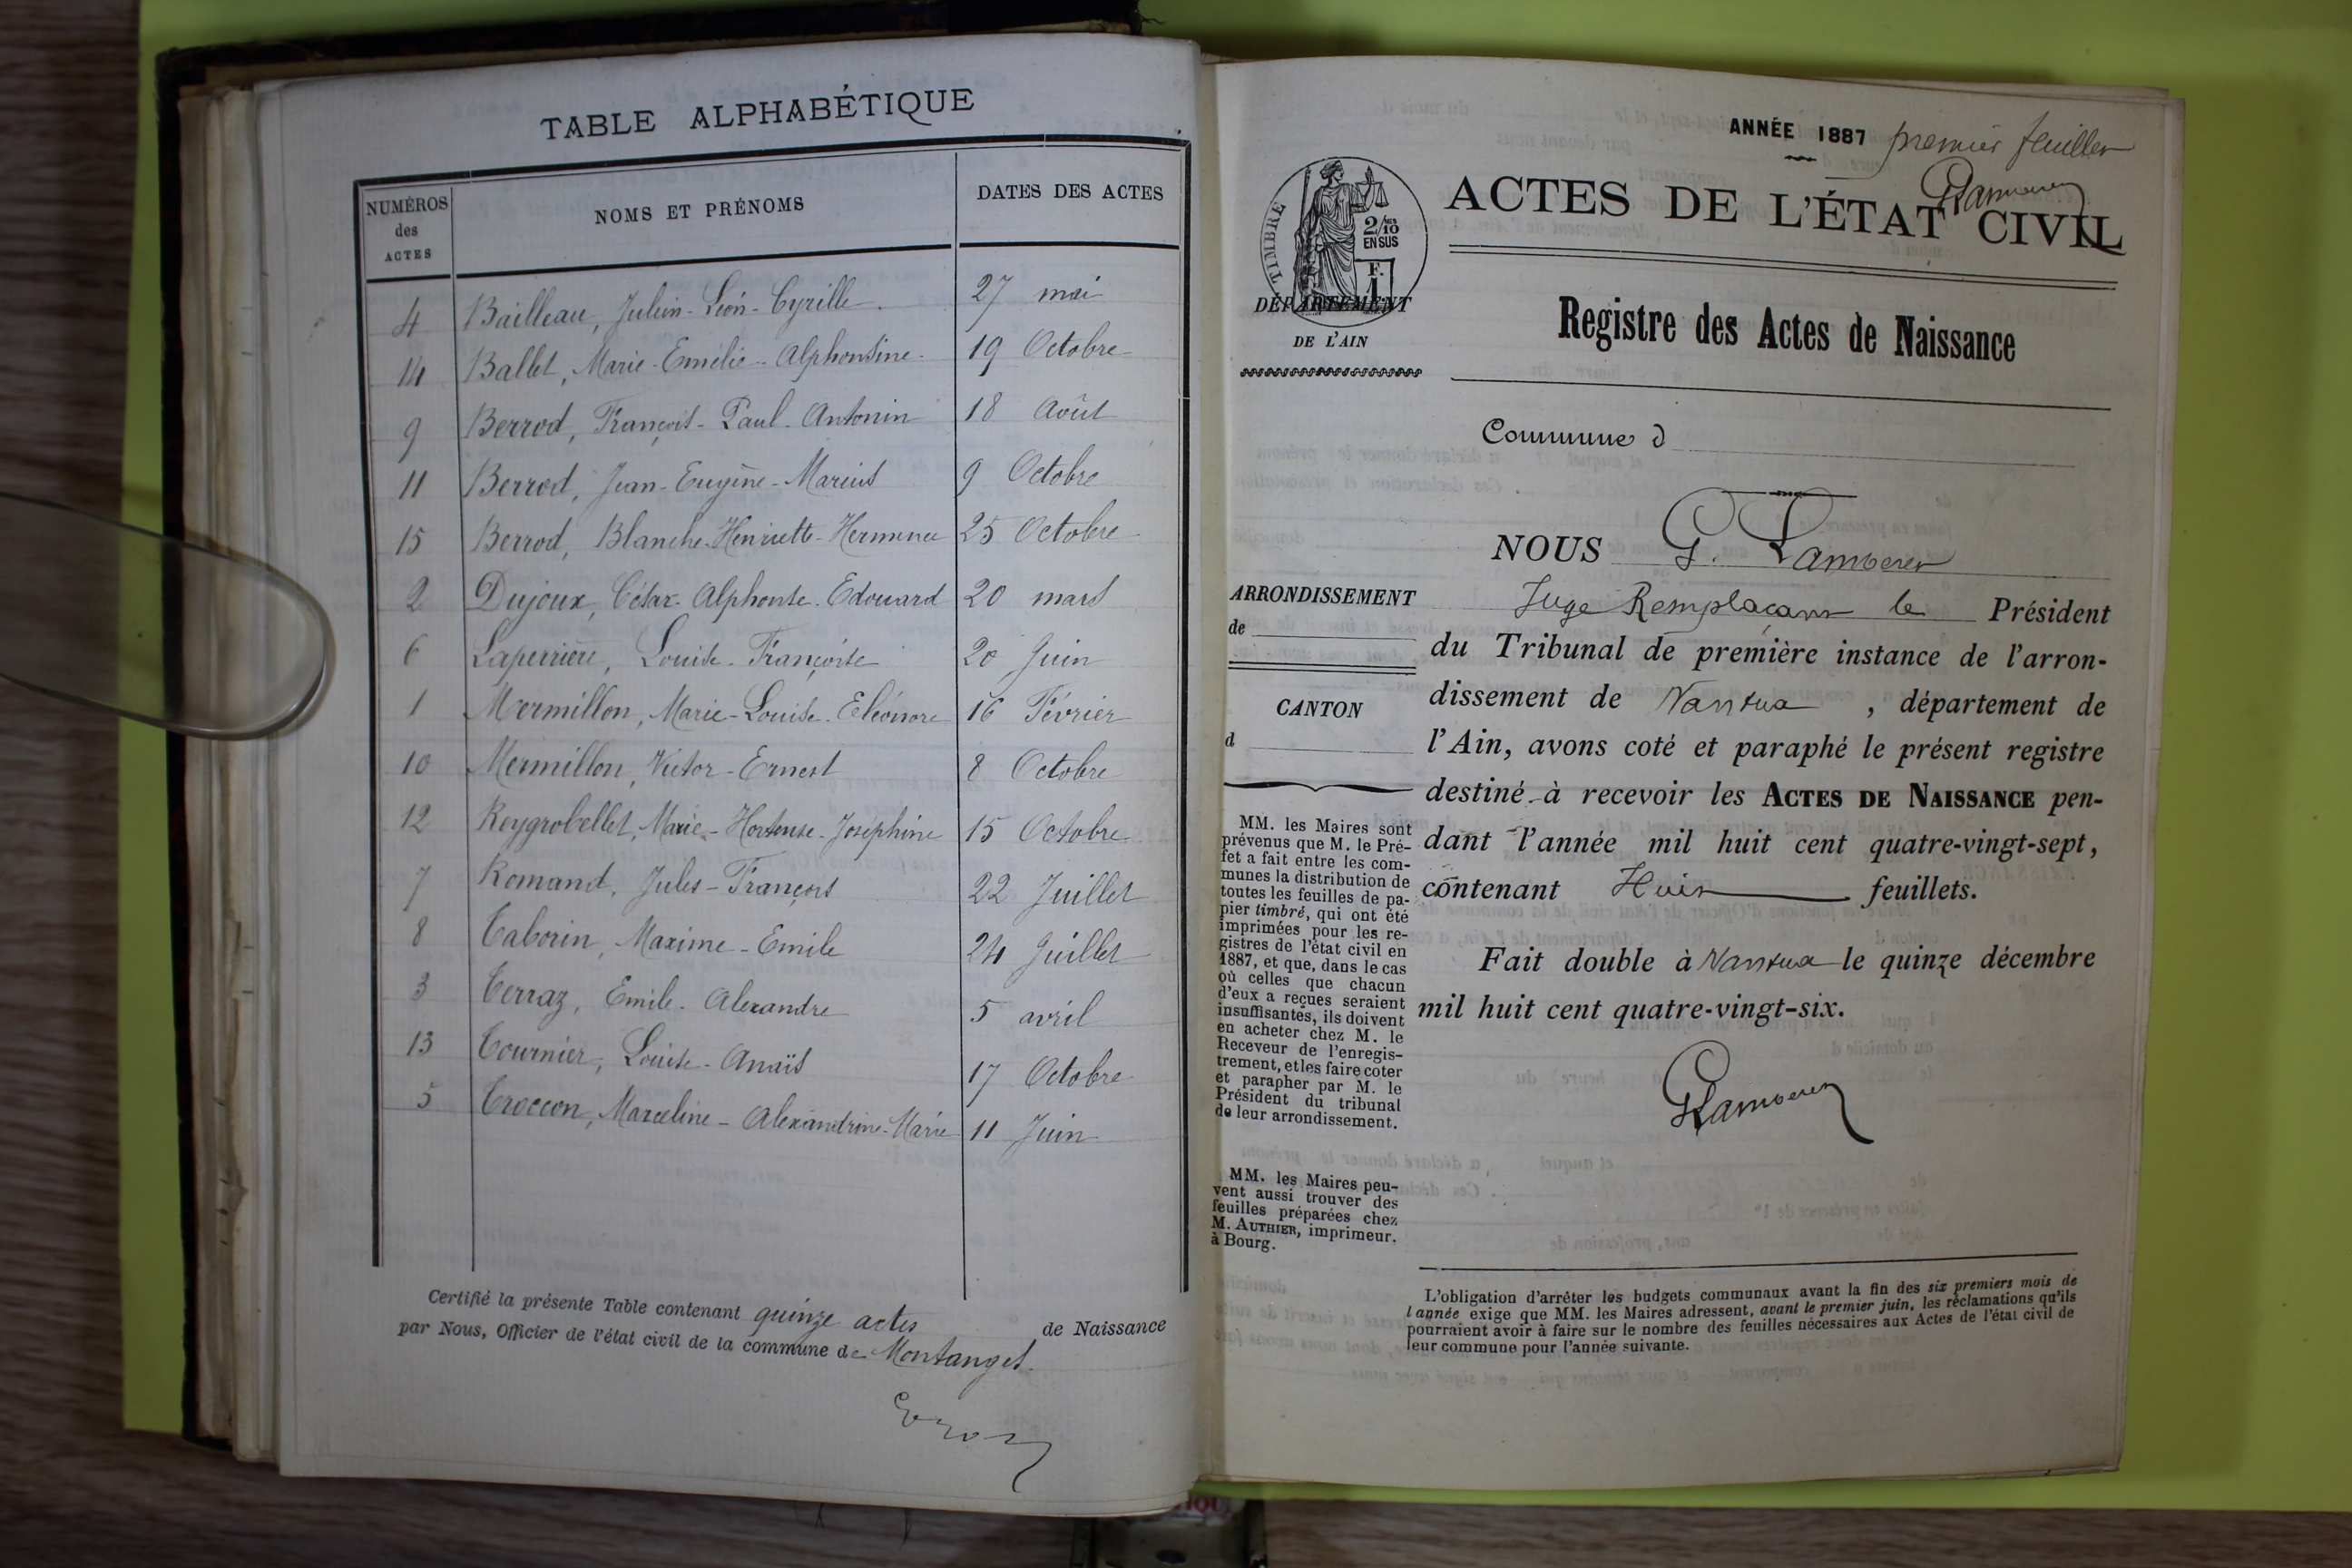 TABLE ALPHABÉTIQUE
NUMÉROS des ACTES NOMS ET PRÉNOMS DATES DES ACTES
4 Bailleau, Julien-Léon-Cyrille. 27 mai
14 Ballet, Marie-Emélie-Alphonsine 19 Octobre
9 Berrod, François-Paul-Antonin 18 Août
11 Berrod, Jean-Eugène-Marius 9 Octobre
15 Berrod, Blanche-Henriette-Herminee 25 Octobre
2 Dujoux, César-Alphonse-Edouard 20 mars
6 Laperrière, Louise-Françoise 20 Juin
1 Mermillon, Marie-Louise-Eléonore 16 Février
10 Mermillon, Victor-Ernest 8 Octobre
12 Reygrobellet, Marie-Hortense-Joséphine 15 Octobre
7 Romand, Jules-François 22 Juillet
8 Taborin, Maxime-Emile 24 Juillet
3 Terraz, Emile-Alexandre 5 avril
13 Tournier, Louise-Anaïs 17 Octobre
5 Troccon, Marceline-Alexandrine-Marie 11 Juin
Certifié la présente Table contenant quinze actes de Naissance
par Nous, Officier de l'état civil de la commune de Montanges
ANNÉE 1887 premier feuillet
TIMBRE
2/10
EN SUS
F.
1
ACTES DE L'ÉTAT CIVIL
DÉPARTEMENT
DE L'AIN
Registre des Actes de Naissance
Commune d
NOUS G. Lambert
Juge Remplaçant le Président
du Tribunal de première instance de l'arron-
dissement de Nantua, département de
l'Ain, avons coté et paraphé le présent registre
destiné à recevoir les ACTES DE NAISSANCE pen-
dant l'année mil huit cent quatre-vingt-sept,
contenant Huit feuillets.
Fait double à Nantua le quinze décembre
mil huit cent quatre-vingt-six.
GLambert
ARRONDISSEMENT
de
CANTON
d
MM. les Maires sont
prévenus que M. le Pré-
fet a fait entre les com-
munes la distribution de
toutes les feuilles de pa-
pier timbré, qui ont été
imprimées pour les re-
gistres de l'état civil en
1887, et que, dans le cas
où celles que chacun
d'eux a reçues seraient
insuffisantes, ils doivent
en acheter chez M. le
Receveur de l'enregis-
trement, et les faire coter
et parapher par M. le
Président du tribunal
de leur arrondissement.
MM. les Maires peu-
vent aussi trouver des
feuilles préparées chez
M. AUTHIER, imprimeur.
à Bourg.
L'obligation d'arrêter les budgets communaux avant la fin des six premiers mois de
l'année exige que MM. les Maires adressent, avant le premier juin, les réclamations qu'ils
pourraient avoir à faire sur le nombre des feuilles nécessaires aux Actes de l'état civil de
leur commune pour l'année suivante.